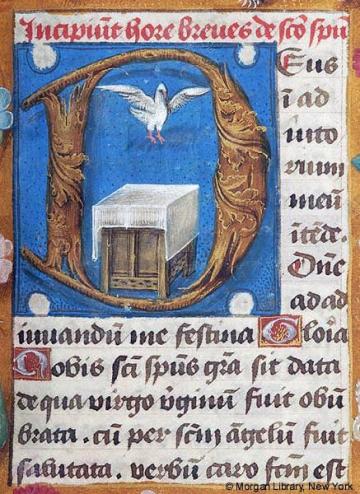 Incipiūt hore breues de scō spū
Deus
ī ad
iuto
rium
meū
ītēde.
Dn̄e
ad ad
iuuandū me festina Gloia
Nobis scī sp̄us grā sit data
de qua virgo v̄ginū fuit obū
brata. cū per scm̄ āgelū fuit
salutata. verbū caro fcm̄ est
© Morgan Library, New York